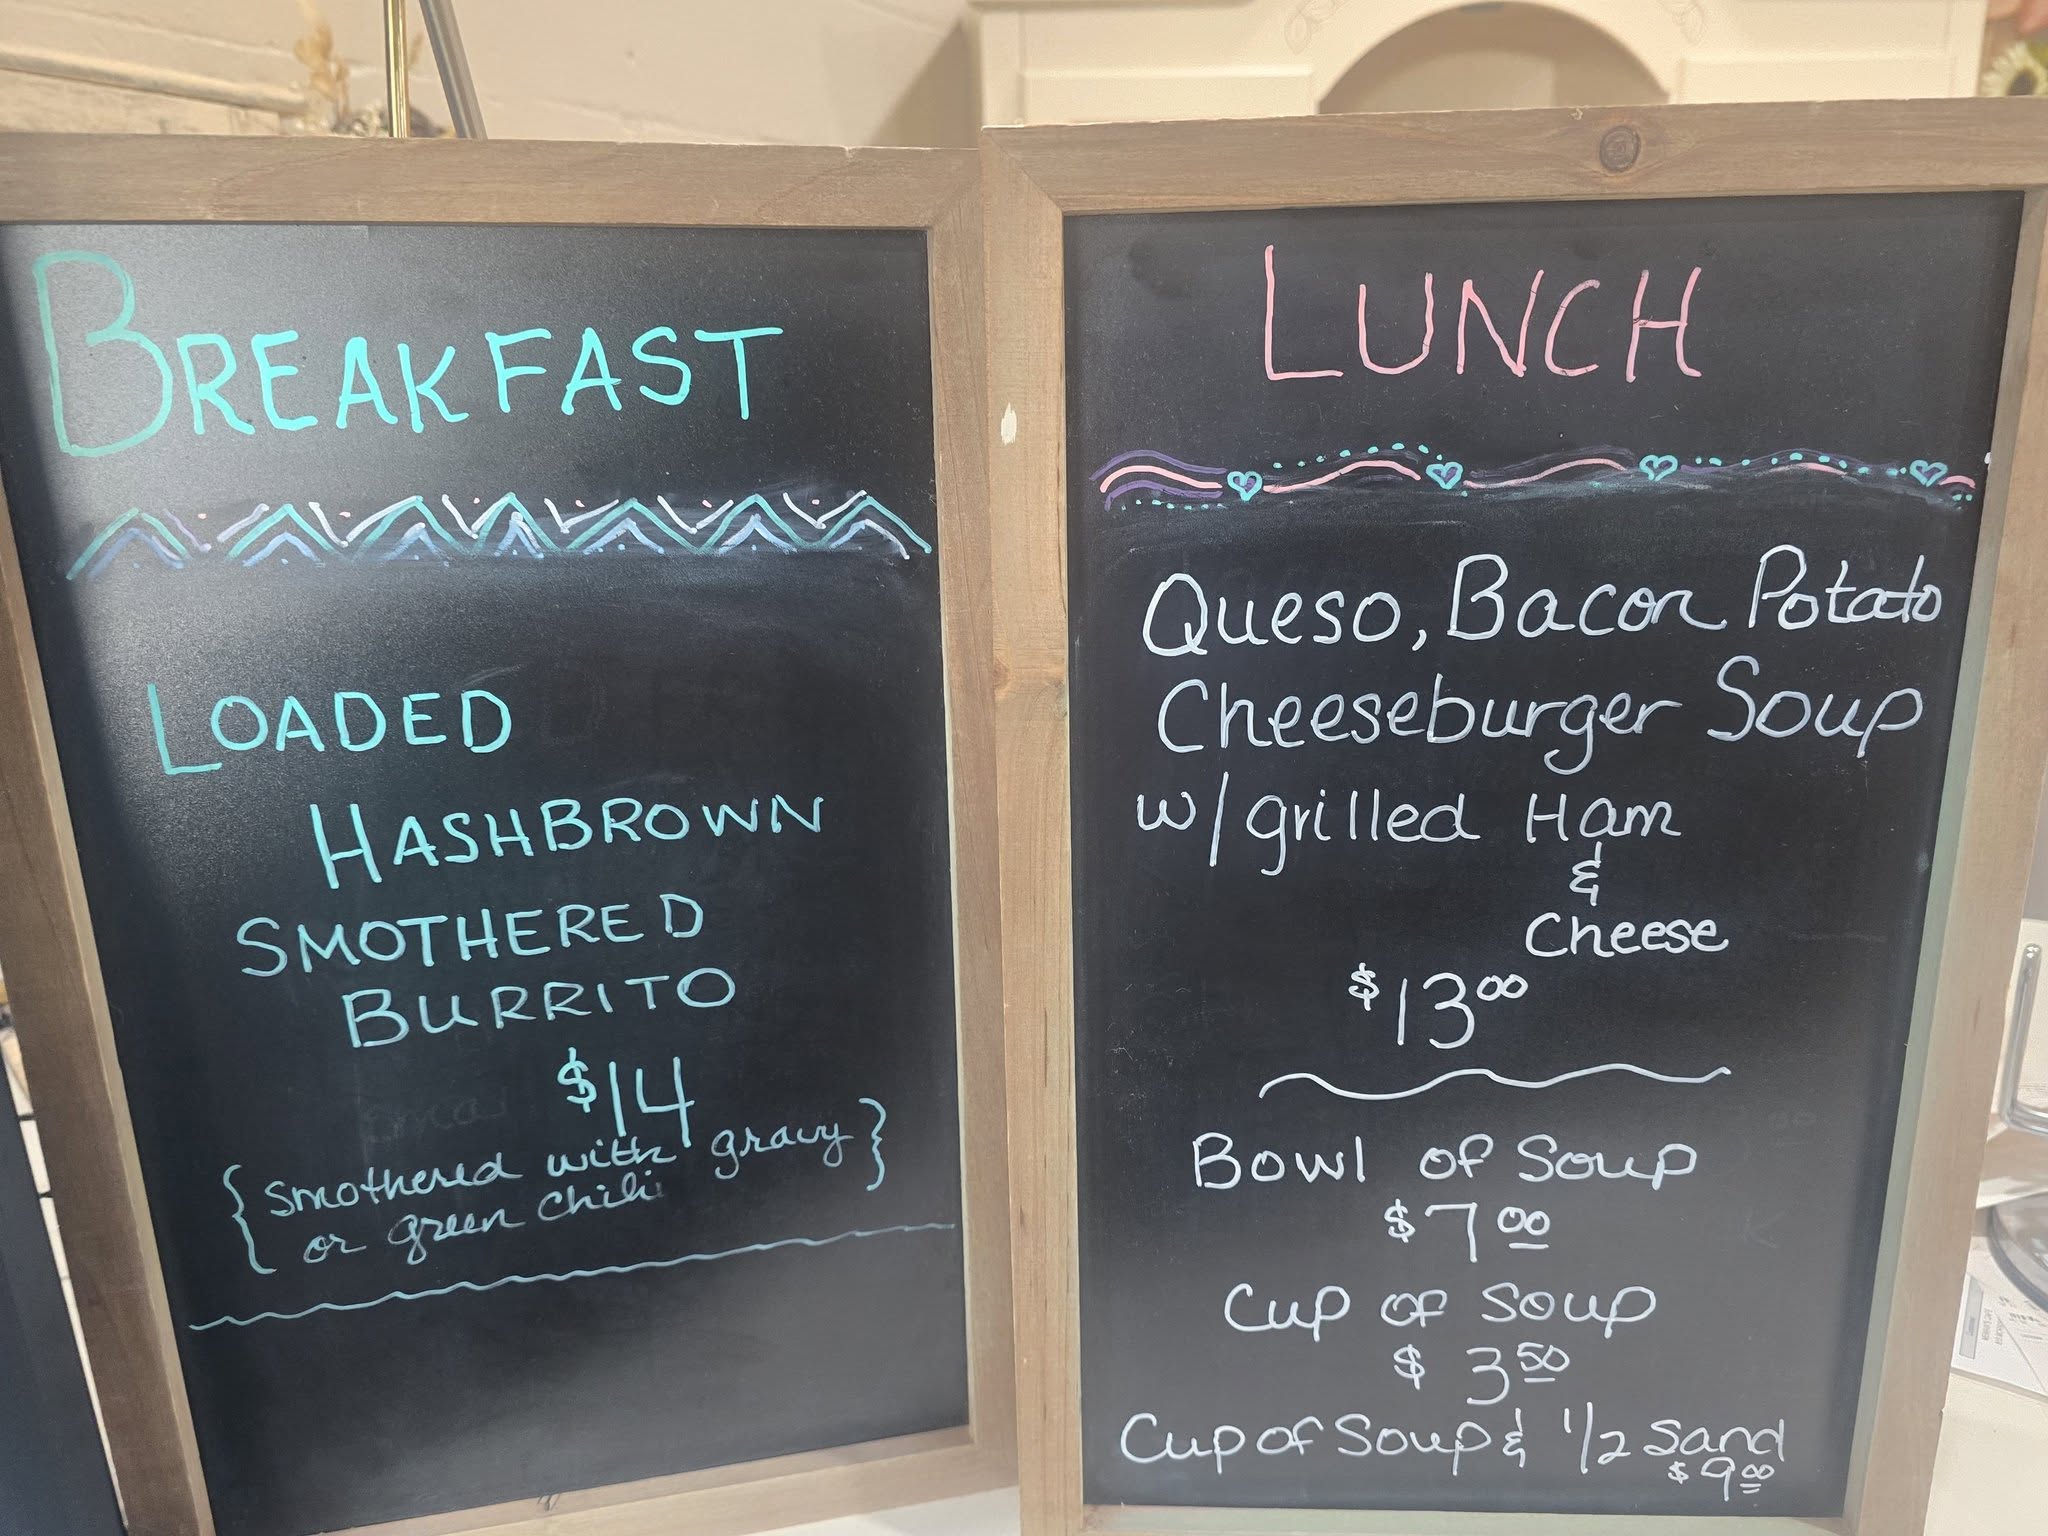 BREAKFAST
LOADED
HASHBROWN
SMOTHERED
BURRITO
$14
{ smothered with gravy }
or green chili
LUNCH
Queso, Bacon Potato
Cheeseburger Soup
w/ grilled Ham
&
Cheese
$13.00
Bowl of Soup
$7.00
Cup of Soup
$3.50
Cup of Soup & 1/2 Sand
$9.00